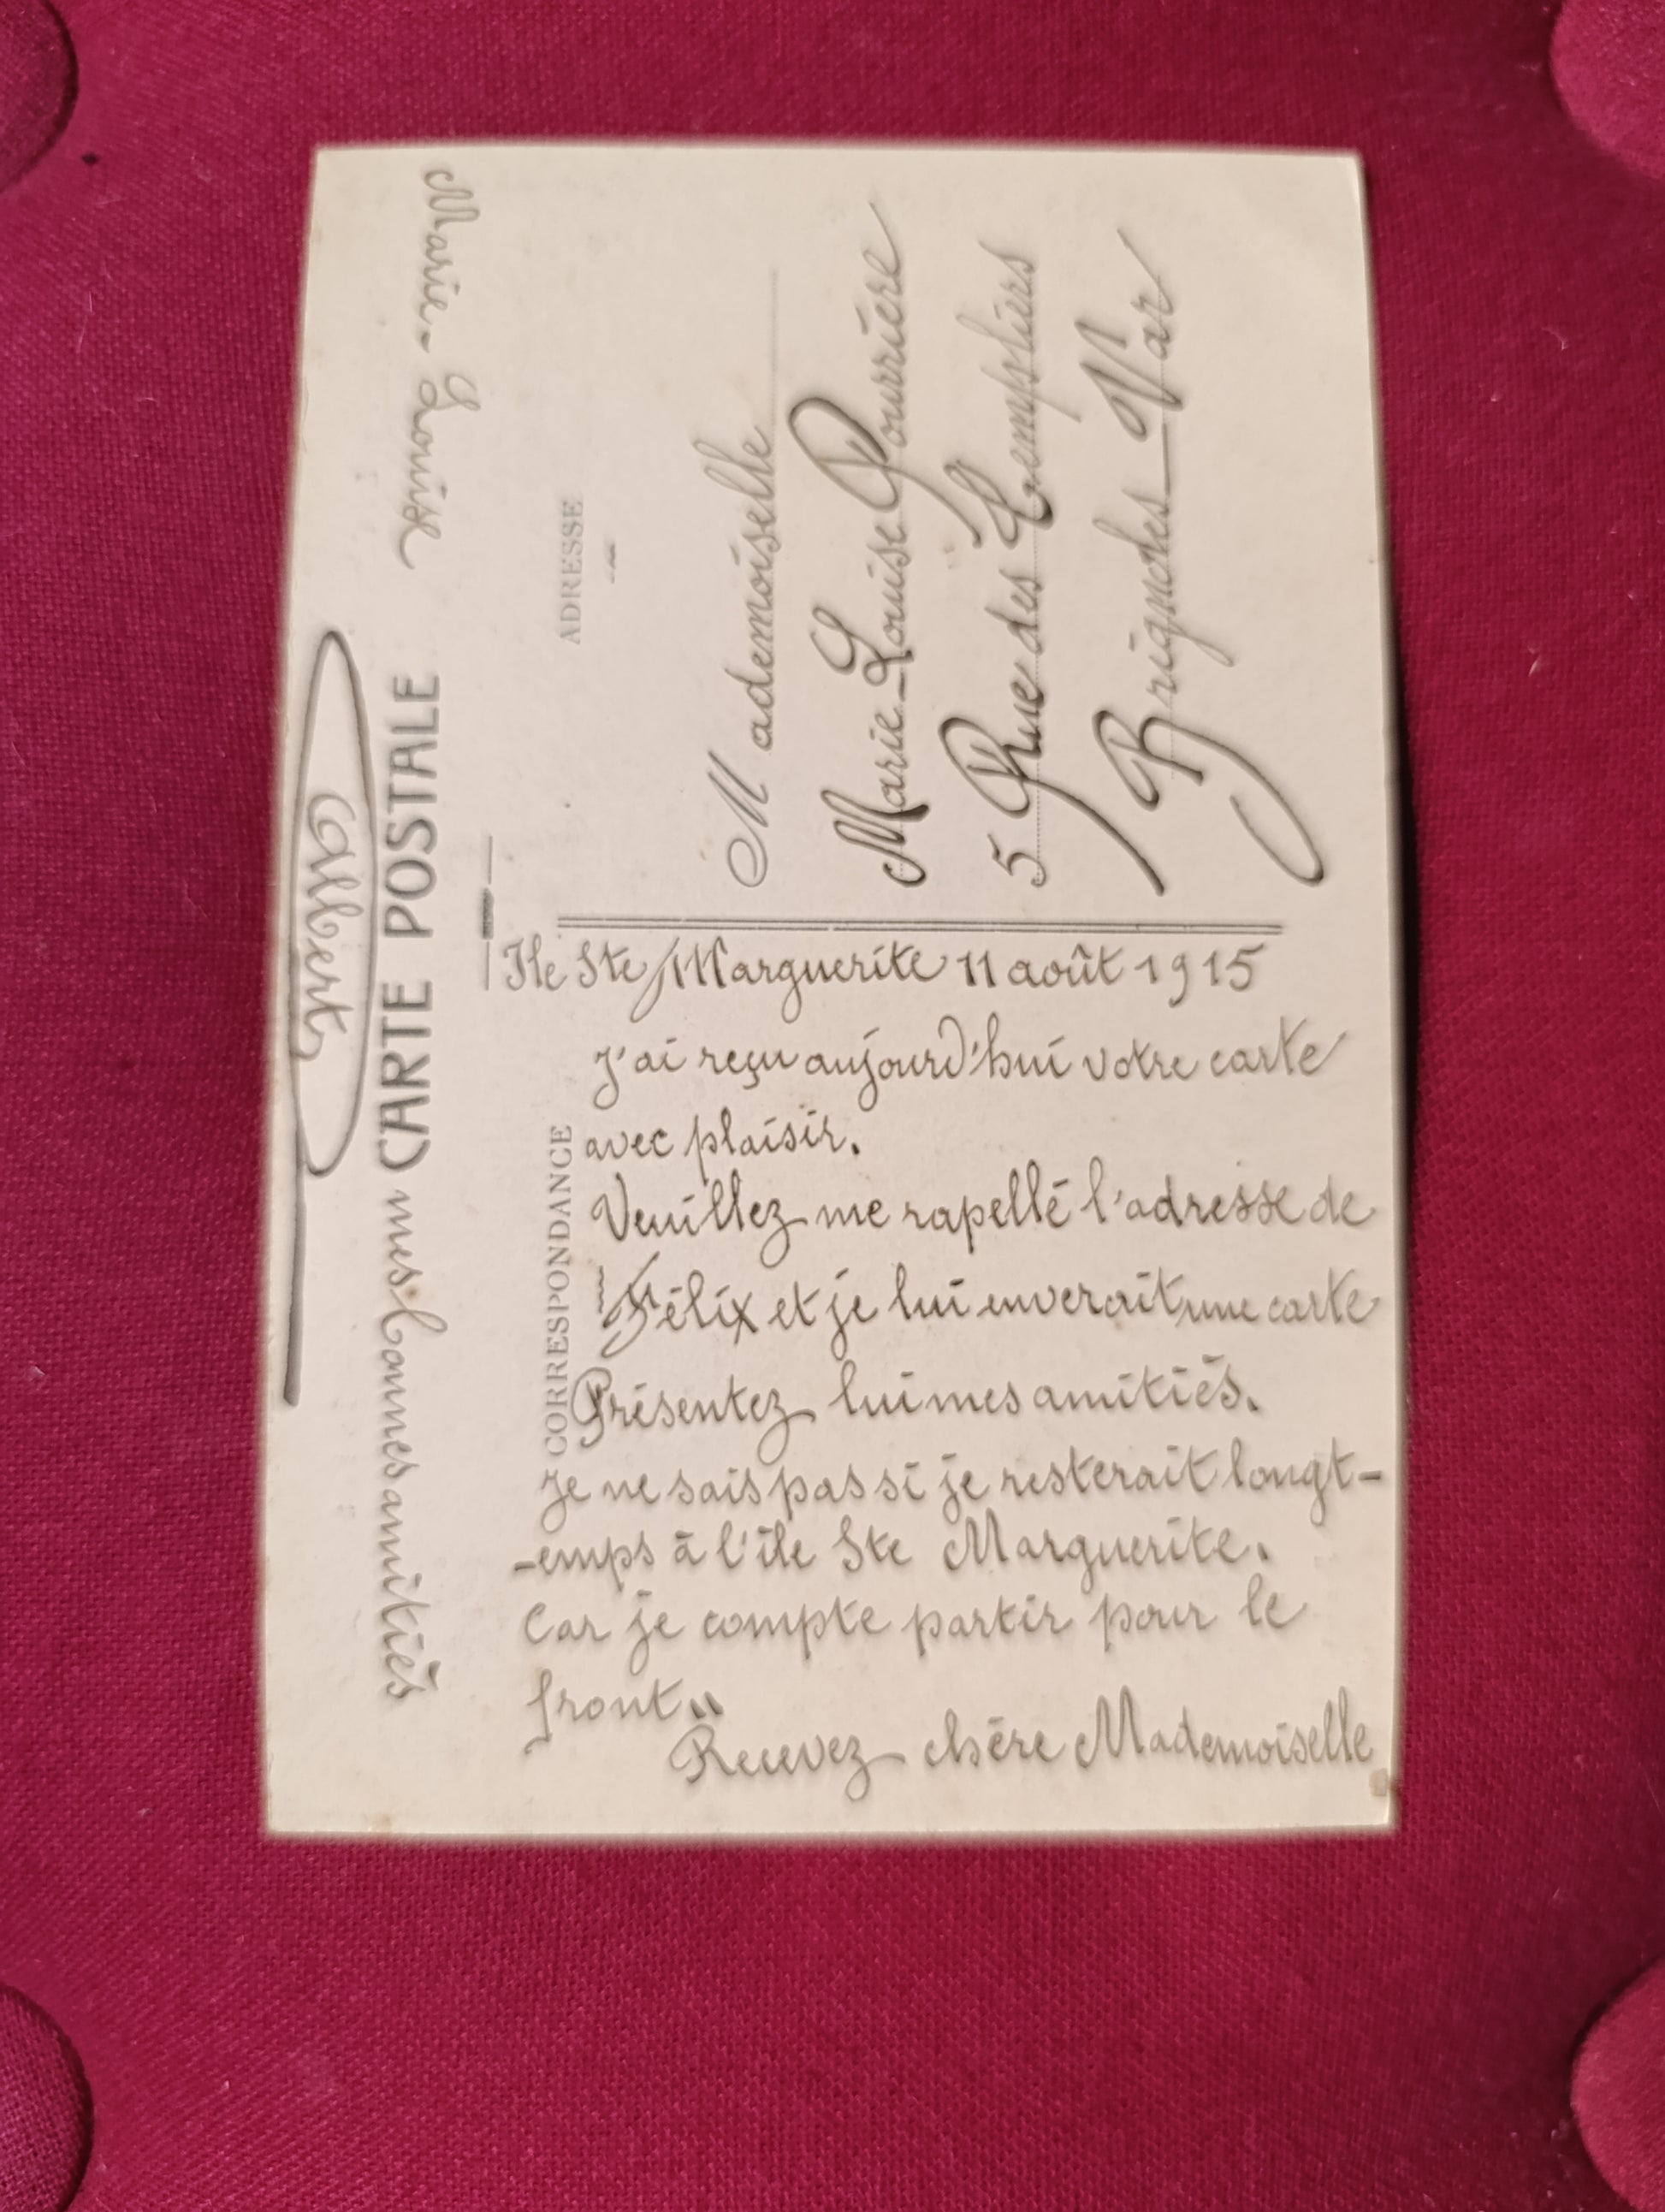 Ile Ste Marguerite 11 août 1915
j'ai reçu aujourd'hui votre carte
avec plaisir.
Veuillez me rapellé l'adresse de
Félix et je lui enverait une carte
Présentez lui mes amitiés.
je ne sais pas si je resterait longt-
-emps à l'île Ste Marguerite.
Car je compte partir pour le
front..
Recevez chère Mademoiselle
Marie-Louise
mes bonnes amitiés
Albert
CARTE POSTALE
CORRESPONDANCE
ADRESSE
Mademoiselle
Marie-Louise Pourrière
5 Rue des Templiers
Brignoles_Var